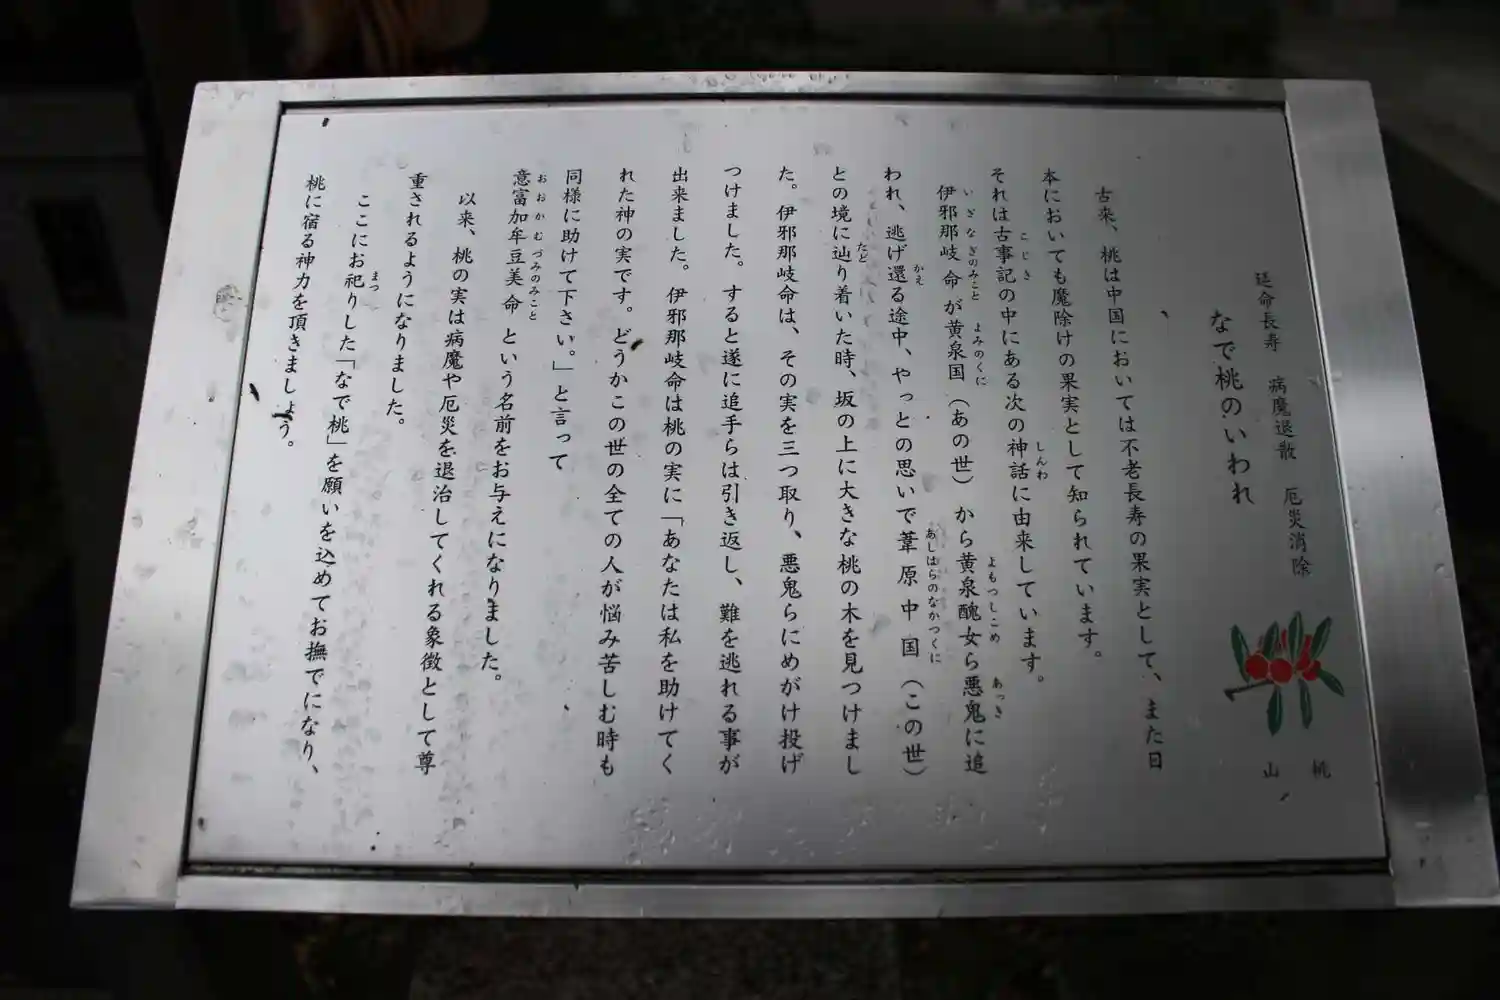 延命長寿　病魔退散　厄災消除
なで桃のいわれ
古来、桃は中国においては不老長寿の果実として、また日
本においても魔除けの果実として知られています。
それは古事記の中にある次の神話に由来しています。
こじき
しんわ
伊邪那岐命が黄泉国(あの世)から黄泉醜女ら悪鬼に追
いざなぎのみこと
よみのくに
よもつしこめ
あっき
われ、逃げ還る途中、やっとの思いで葦原中国(この世)
かえ
あしはらのなかつくに
との境に辿り着いた時、坂の上に大きな桃の木を見つけまし
たど
た。伊邪那岐命は、その実を三つ取り、悪鬼らにめがけ投げ
つけました。すると遂に追手らは引き返し、難を逃れる事が
出来ました。伊邪那岐命は桃の実に「あなたは私を助けてく
れた神の実です。どうかこの世の全ての人が悩み苦しむ時も
同様に助けて下さい。」と言って
意富加牟豆美命という名前をお与えになりました。
おおかむづみのみこと
以来、桃の実は病魔や厄災を退治してくれる象徴として尊
重されるようになりました。
ここにお祀りした「なで桃」を願いを込めてお撫でになり、
まつ
桃に宿る神力を頂きましょう。
桃
山